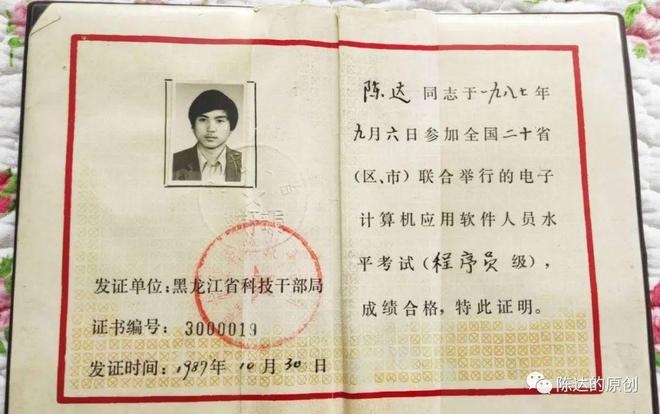 发证单位:黑龙江省科技干部局
证书编号: 3000019
发证时间: 1987年 10 月 30 日
陈达 同志于一九八七年
九月六日参加全国二十省
(区、市)联合举行的电子
计算机应用软件人员水
平考试(程序员 级),
成绩合格,特此证明。
陈达的原创